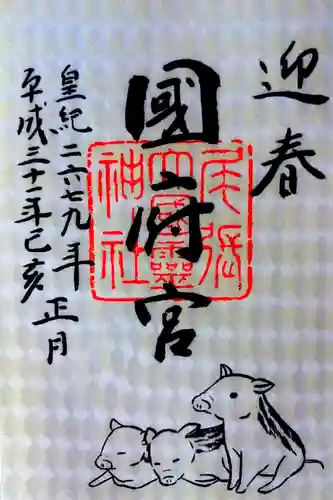 迎春
國府宮
尾張
大國霊
神社
皇紀二六七九年
平成三十一年己亥
正月